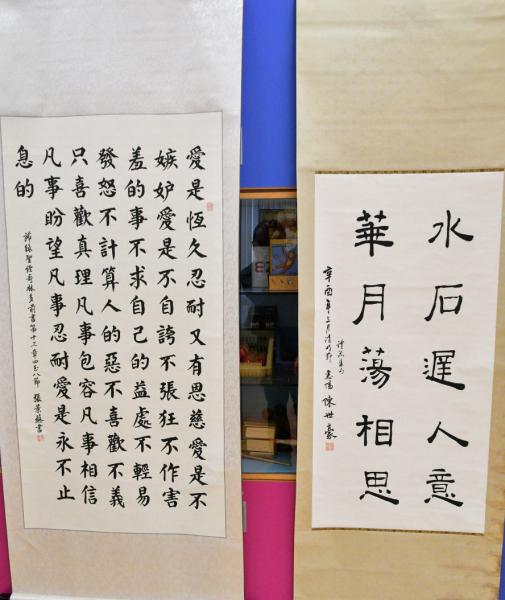 水石遲人意
華月蕩相思
辛酉年三月清明節 惠陽 陳世豪
愛是恆久忍耐又有恩慈愛是不
嫉妒愛是不自誇不張狂不作害
羞的事不求自己的益處不輕易
發怒不計算人的惡不喜歡不義
只喜歡真理凡事包容凡事相信
凡事盼望凡事忍耐愛是永不止
息的
節錄聖經哥林多前書第十三章四至八節 張景書